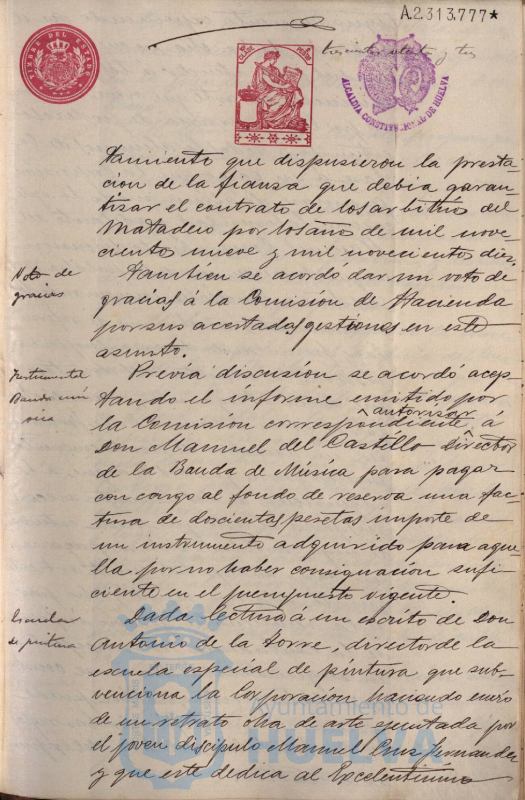 A.2.313.777*
TIMBRE DEL ESTADO
ALCALDIA CONSTITUCIONAL DE HUELVA
tamiento que dispusieron la presta-
cion de la fianza que debia garan-
tizar el contrato de los arbitrios del
Matadero por los años de mil nove-
cientos nueve y mil novecientos diez.
Voto de
gracias
Tambien se acordó dar un voto de
gracias á la Comisión de Hacienda
por sus acertadas gestiones en este
asunto.
Instrumental
Banda mú-
sica
Previa discusión se acordó acep-
tando el informe emitido por
la Comisión correspondiente autorizar á
Don Manuel del Castillo Director
de la Banda de Música para pagar
con cargo al fondo de reserva una fac-
tura de doscientas pesetas importe de
un instrumento adquirido para aque-
lla por no haber consignación sufi-
ciente en el presupuesto vigente.
Escuela
de pintura
Dada lectura á un escrito de Don
Antonio de la Torre, director de la
escuela especial de pintura que sub-
venciona la Corporación, haciendo
de un retrato obra de arte ejecutada por
el joven discipulo Manuel Cruz Fernandez
y que este dedica al Excelentísimo
Ayuntamiento de
HUELVA